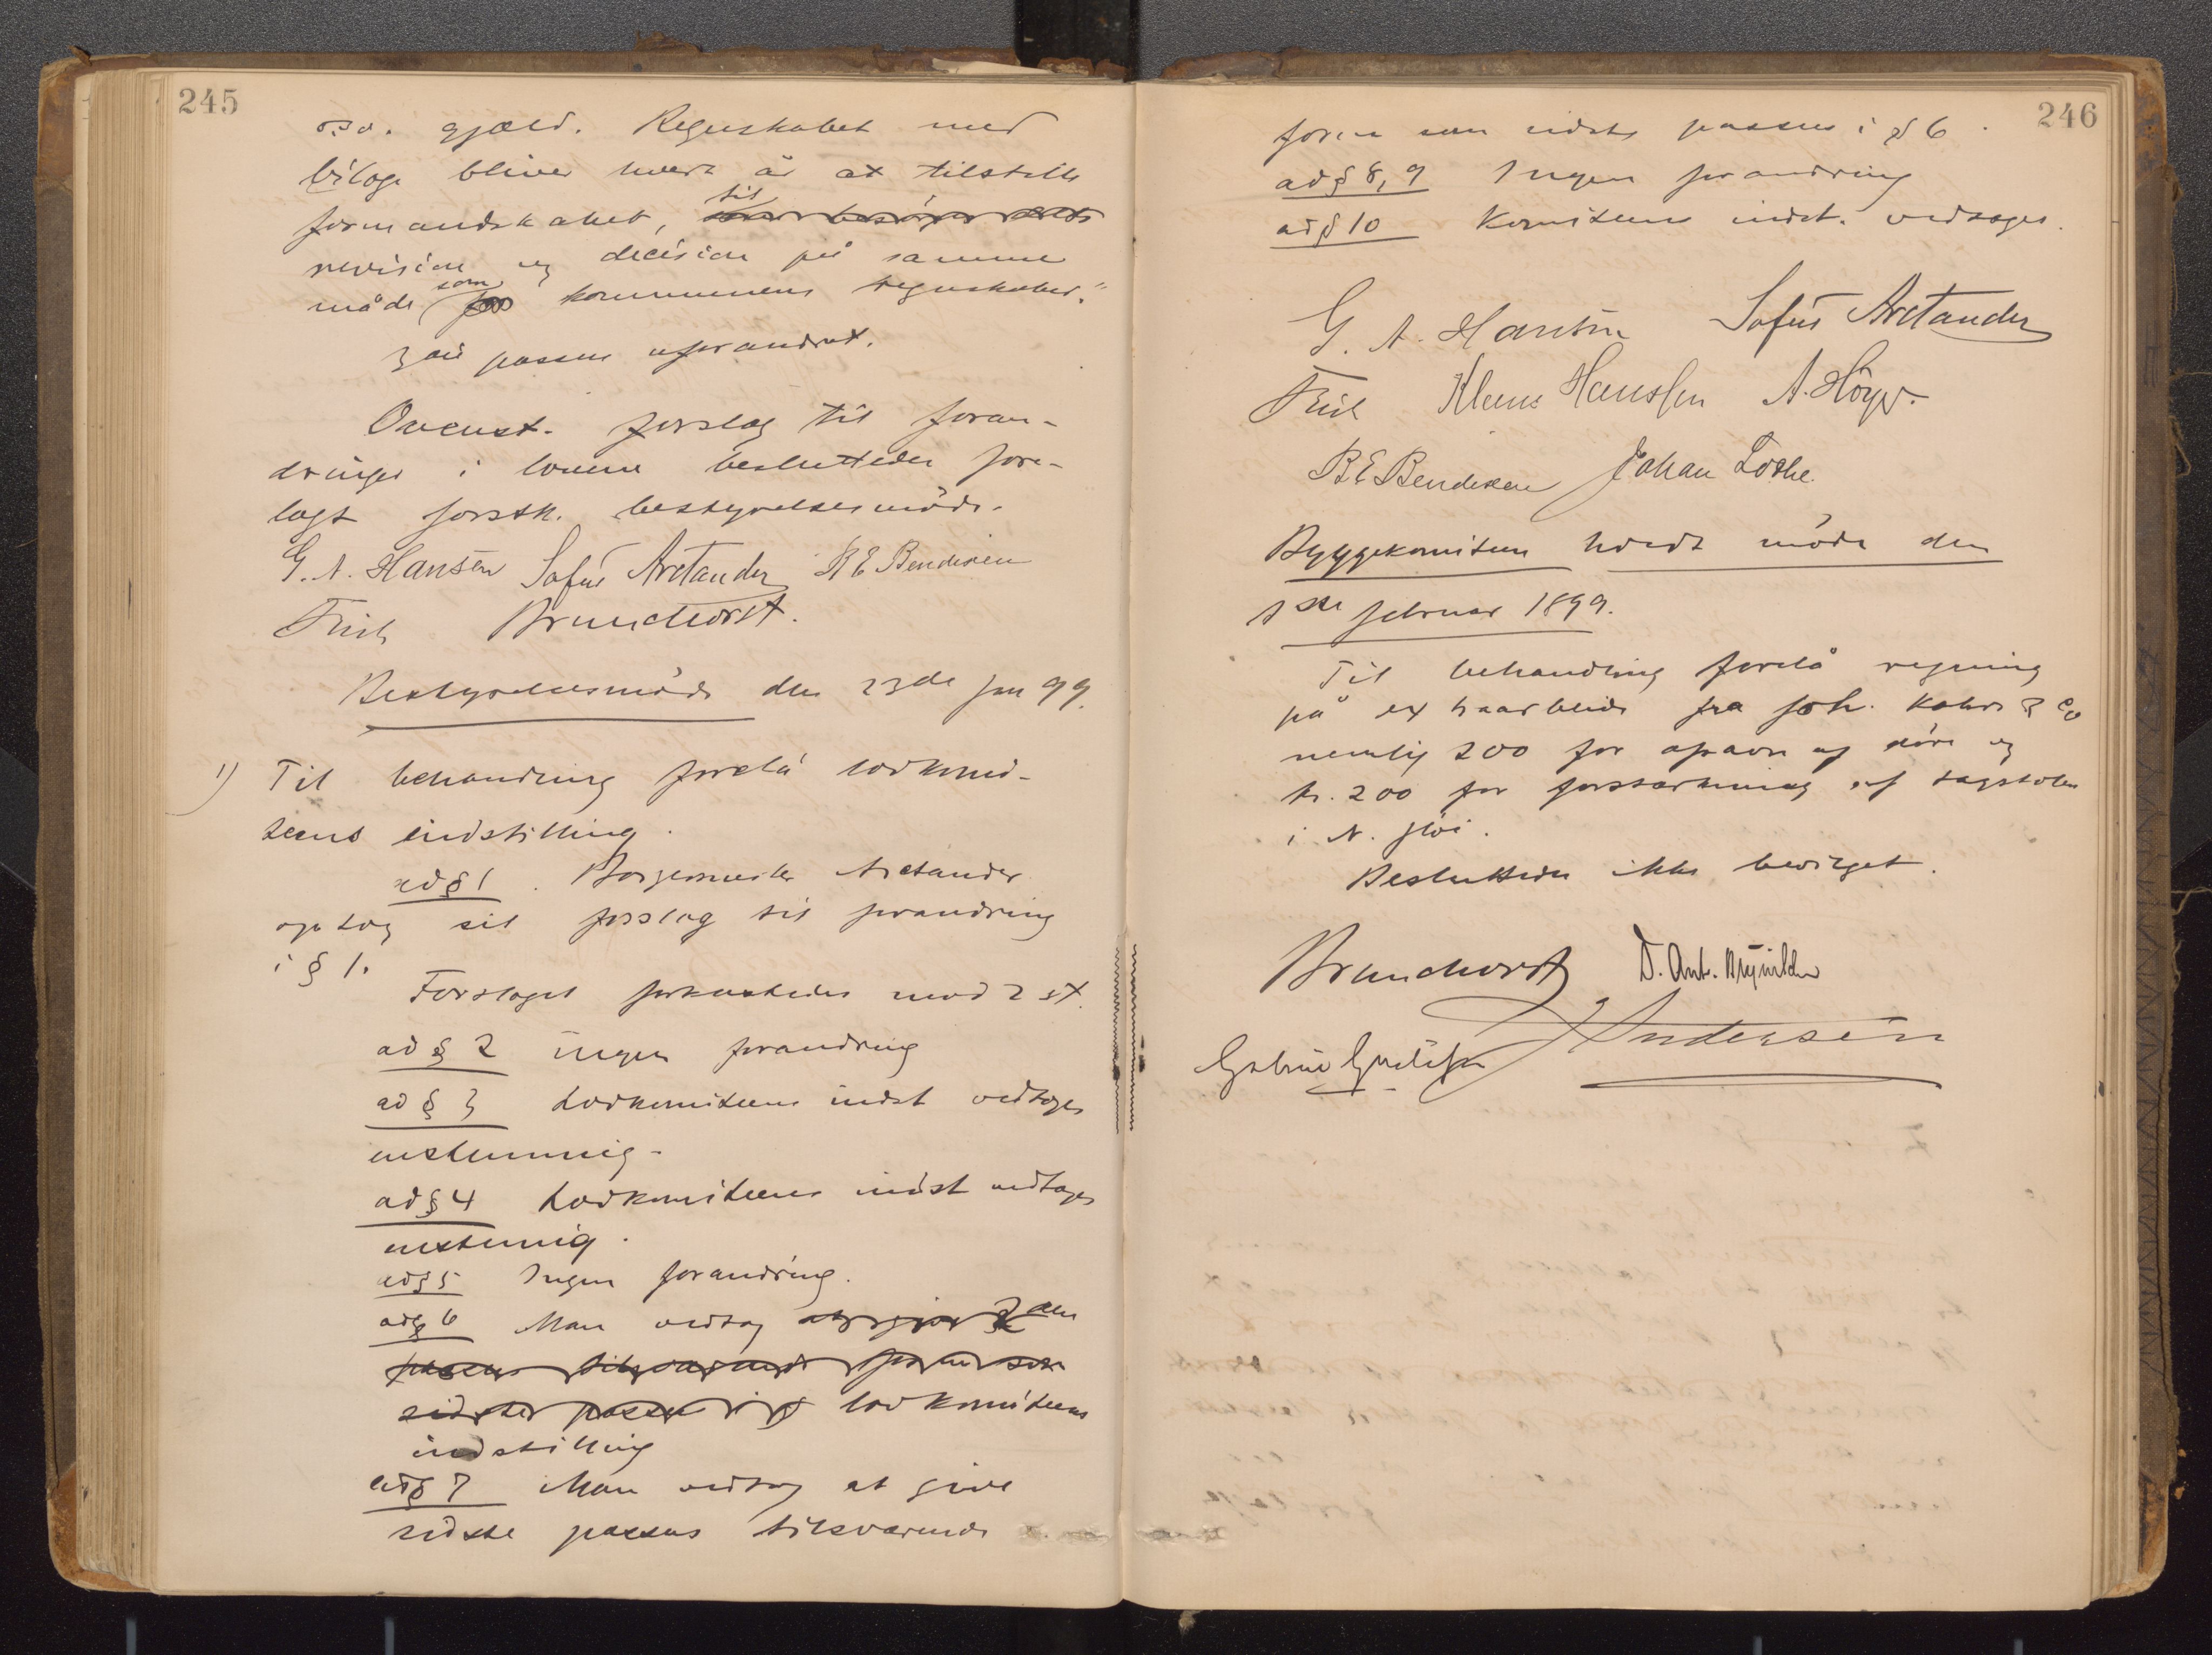 245
o.s.v. gjæld. Regnskabet med
bilage bliver hvert år at tilstille
formandskabet, til
revision og decision på samme
måde som kommunens regnskaber."
3die passus uforandret.
Ovenst. forslag til foran-
dringer i lovene besluttedes fore-
lagt forstk. bestyrelsesmöde.
G. A. Hansen Sofus Arctander B E Bendixen
Friele Brunchorst.
Bestyrelsesmöde den 23de jan 99.
1) Til behandling forelå lovkomi-
teens indstilling.
ad § 1. Borgermester Arctander
optog sit forslag til forandring
i § 1.
Forslaget forkastedes mod 2 st.
ad § 2 ingen forandring
ad § 3 Lovkomiteens indst vedtoges
enstemmig.
ad § 4 Lovkomiteens indst vedtoges
enstemmig.
ad § 5 Ingen forandring.
ad § 6 Man vedtog
lovkomiteens
indstilling
ad § 7 Man vedtog at give
sidste passus tilsvarende
246
form som sidste passus i § 6.
ad § 8, 9 Ingen forandring
ad § 10 Komiteens indst. vedtoges.
G. A. Hansen Sofus Arctander
Friele Klaus Hanssen A.
B E Bendixen Johan Lothe.
Byggekomiteen holdt möde den
1ste februar 1899.
Til behandling forelå regning
på extraarbeide fra Joh. Kahrs & Co
nemlig 200 for af döre og
kr. 200 for forstærkning af tagstolen
i N. flöi.
Besluttedes ikke bevilget.
Brunchorst D. Ant.
J Andersen
Gabriel